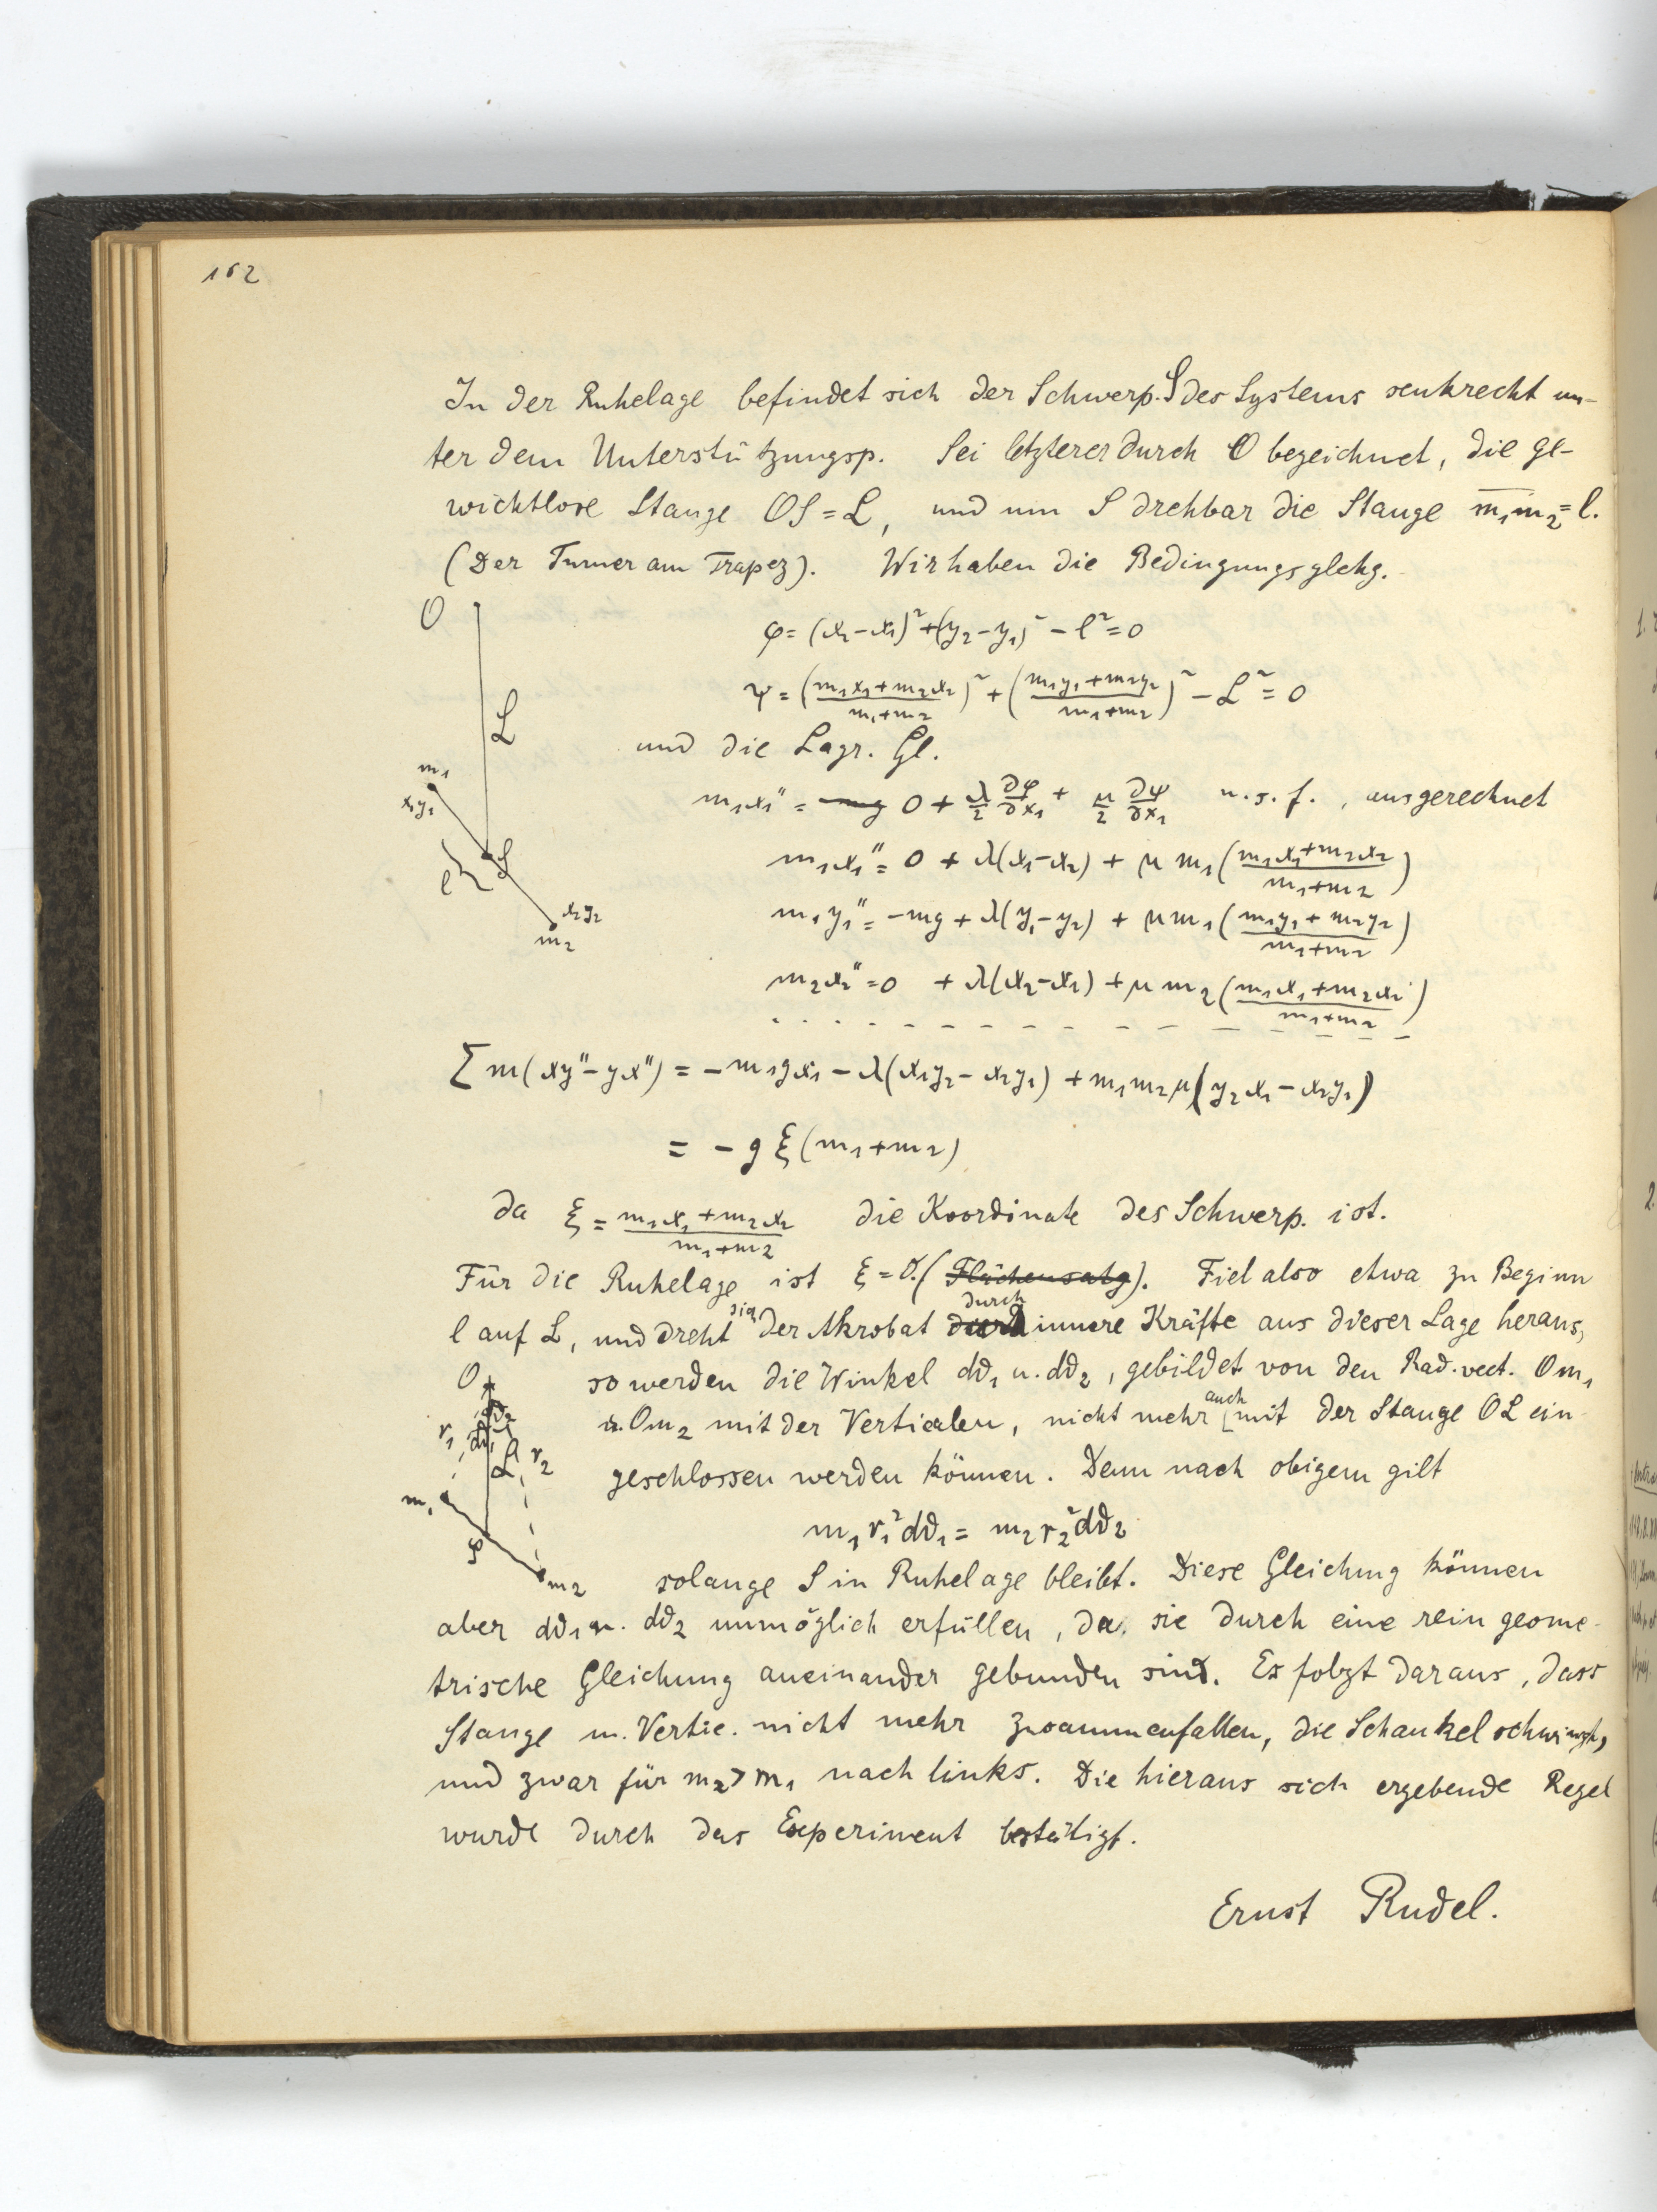 162
In der Ruhelage befindet sich der Schwerp. S des Systems senkrecht un-
ter dem Unterstützungsp. Sei letzterer durch O bezeichnet, die ge-
wichtlose Stange OS = L, und um S drehbar die Stange m₁m₂ = l.
(Der Turner am Trapez). Wir haben die Bedingungsglchg.
O
φ = (x₂-x₁)² + (y₂-y₁)² - l² = 0
ψ = ((m₁x₁+m₂x₂)/(m₁+m₂))² + ((m₁y₁+m₂y₂)/(m₁+m₂))² - L² = 0
L
und die Lagr. Gl.
m₁
x₁y₁
m₁x₁'' = 0 + λ/2 ∂φ/∂x₁ + μ/2 ∂ψ/∂x₁ u.s.f., ausgerechnet
m₁x₁'' = 0 + λ(x₁-x₂) + μ m₁ ((m₁x₁+m₂x₂)/(m₁+m₂))
l S
m₁y₁'' = -mg + λ(y₁-y₂) + μ m₁ ((m₁y₁+m₂y₂)/(m₁+m₂))
x₂y₂
m₂
m₂x₂'' = 0 + λ(x₂-x₁) + μ m₂ ((m₁x₁+m₂x₂)/(m₁+m₂))
Σ m(xy''-yx'') = -m₁gx₁ - λ(x₁y₂-x₂y₁) + m₁m₂μ(y₂x₁-x₂y₁)
= -gξ(m₁+m₂)
da ξ = (m₁x₁+m₂x₂)/(m₁+m₂) die Koordinate des Schwerp. ist.
Für die Ruhelage ist ξ = 0. (Flächensatz). Fiel also etwa zu Beginn
l auf L, und dreht sich der Akrobat durch innere Kräfte aus dieser Lage heraus,
so werden die Winkel dϑ₁ u. dϑ₂, gebildet von den Rad. vect. Om₁
u. Om₂ mit der Verticalen, nicht mehr auch mit der Stange OL ein-
geschlossen werden können. Denn nach obigem gilt
O
dϑ₂
r₁ dϑ₁
L r₂
m₁
S
m₂
m₁r₁²dϑ₁ = m₂r₂²dϑ₂
solange S in Ruhelage bleibt. Diese Gleichung können
aber dϑ₁ u. dϑ₂ unmöglich erfüllen, da sie durch eine rein geome-
trische Gleichung aneinander gebunden sind. Es folgt daraus, dass
Stange u. Vertic. nicht mehr zusammenfallen, die Schaukel schwingt,
und zwar für m₂ > m₁ nach links. Die hieraus sich ergebende Regel
wurde durch das Experiment bestätigt.
Ernst Rudel.